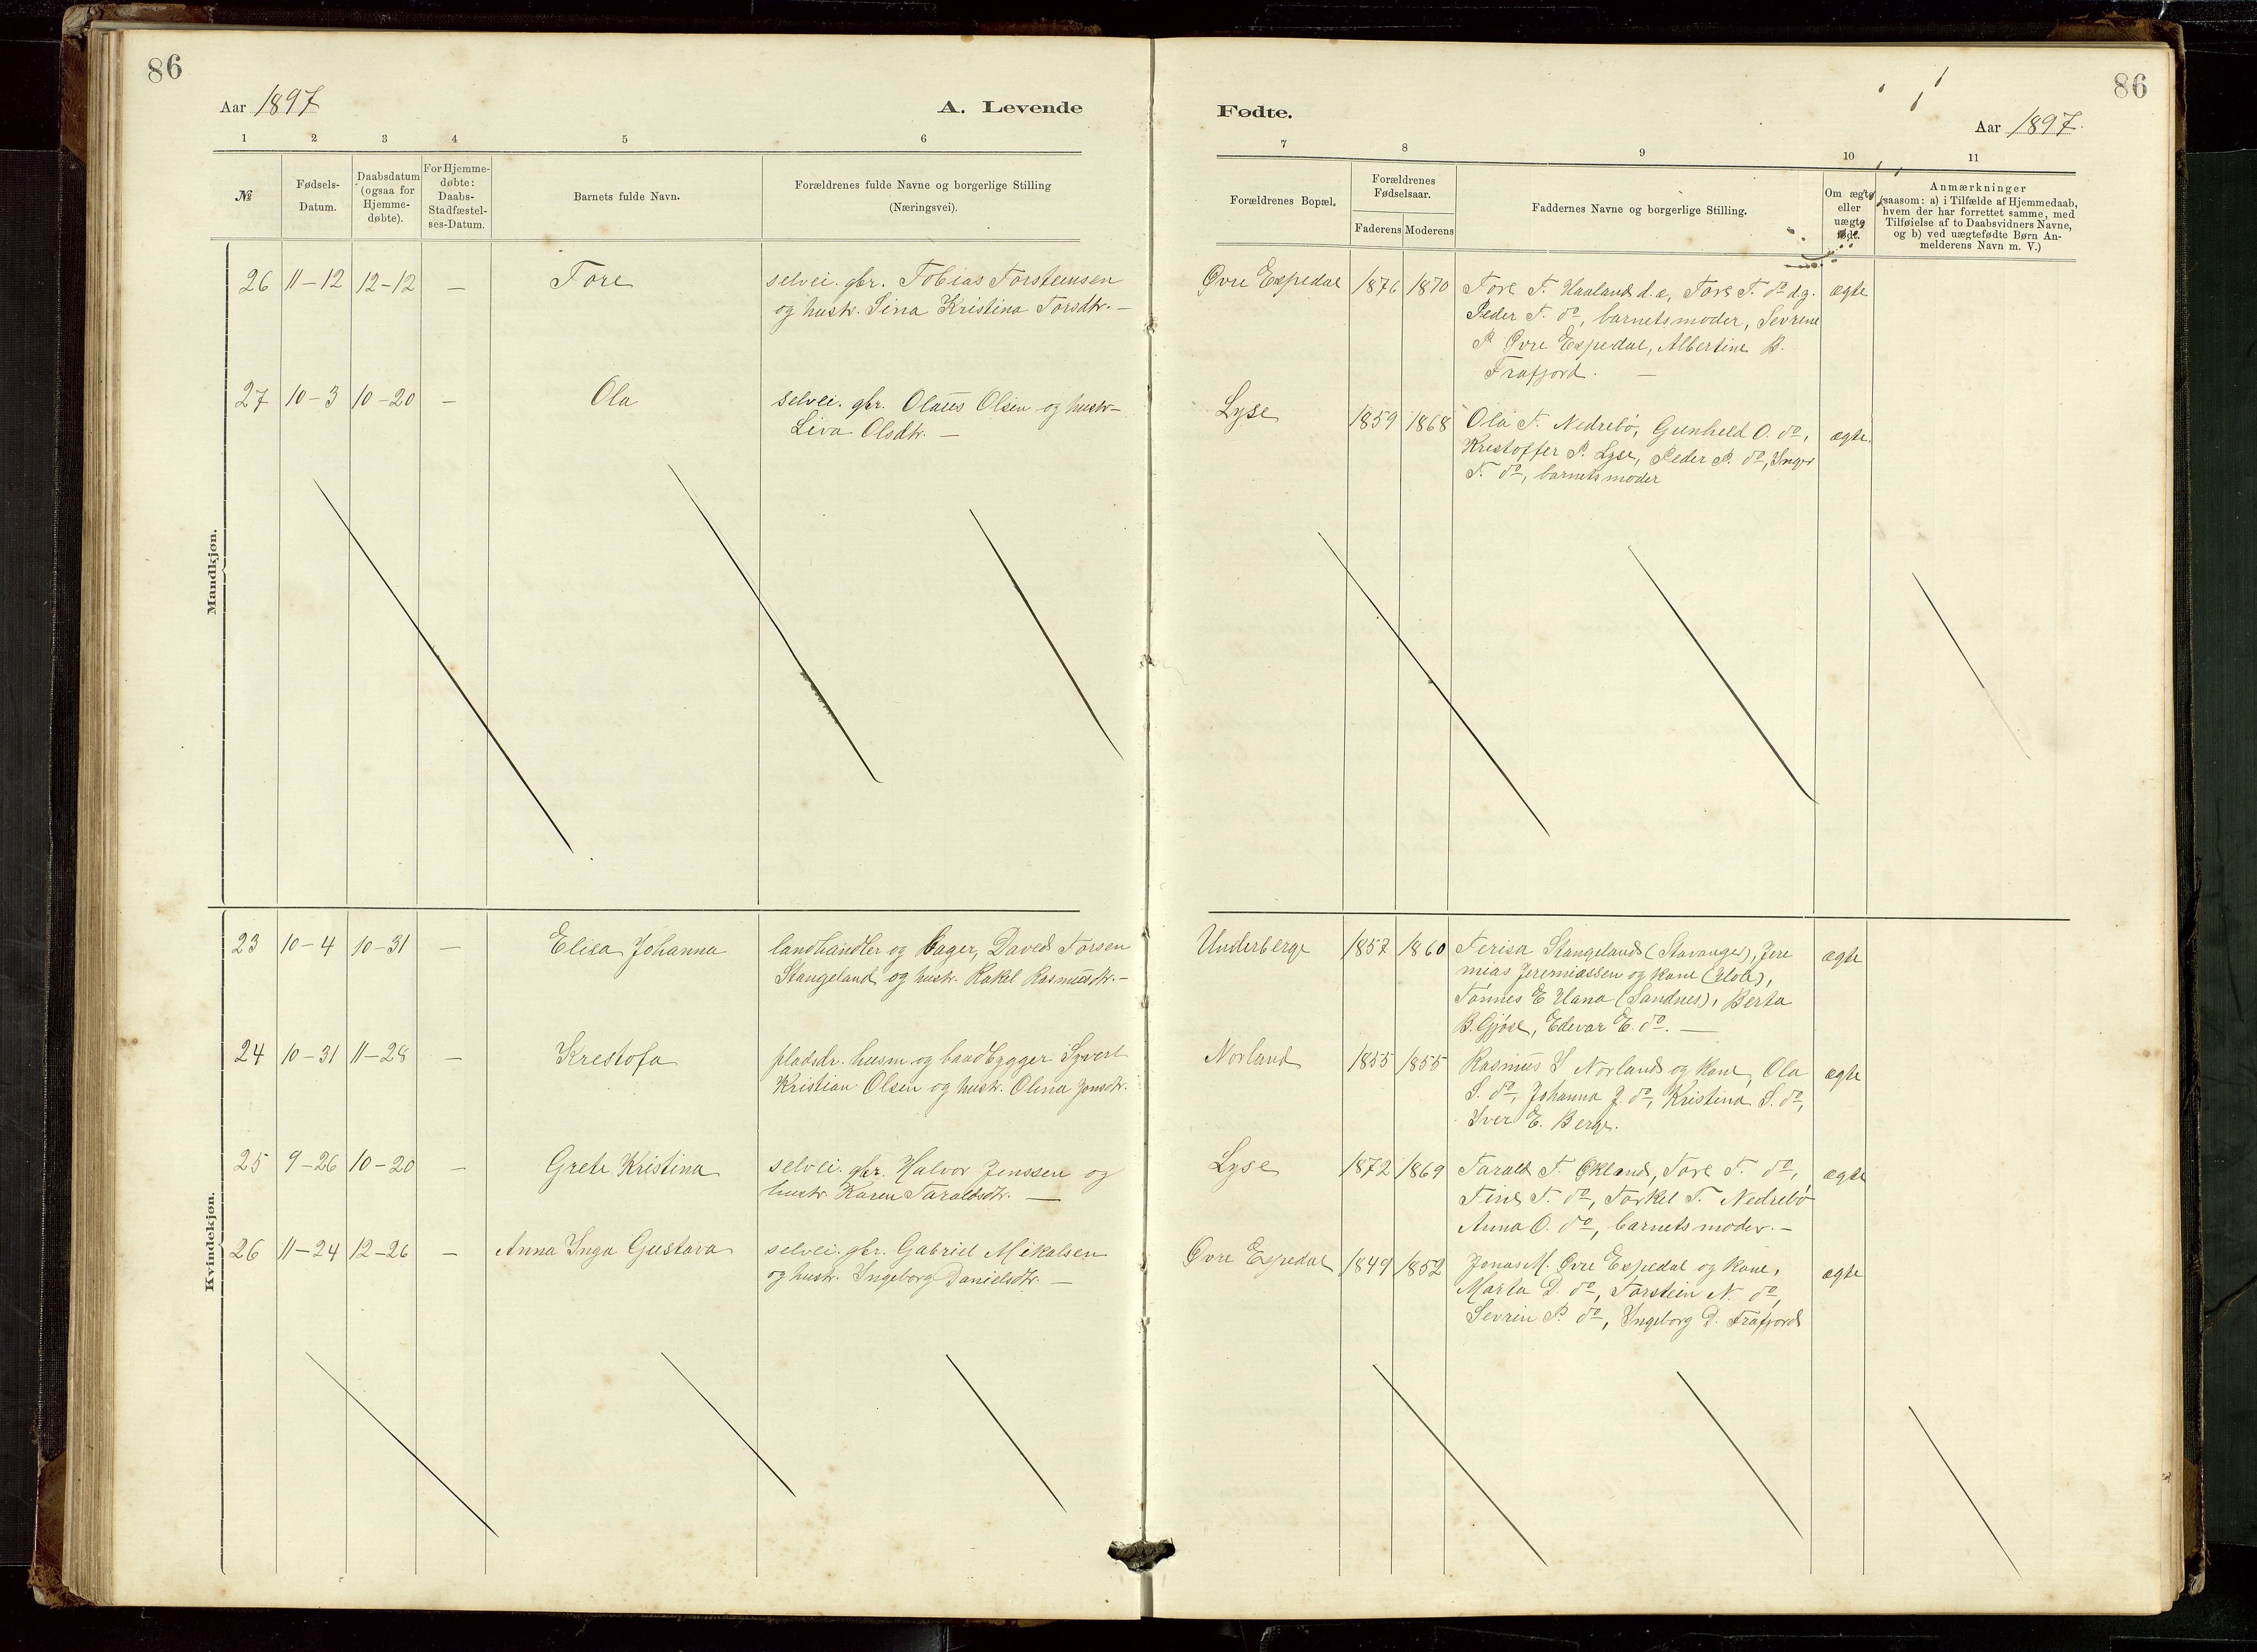 86
Aar 1897
A. Levende
1 2 3 4 5 6
№
Fødsels-
Datum.
Daabsdatum
(ogsaa for
Hjemme-
døbte).
For Hjemme-
døbte:
Daabs-
Stadfæstel-
ses-Datum.
Barnets fulde Navn.
Forældrenes fulde Navne og borgerlige Stilling
(Næringsvei).
Mandkjøn.
26 11-12 12-12 — Tore selvei. gbr. Tobias Torsteinsen
og hustr. Sina Kristina Torsdtr. —
27 10-3 10-20 — Ola selvei. gbr. Olaus Olsen og hustr
Liva Olsdtr. —
Kvindekjøn.
23 10-4 10-31 — Elisa Johanna landhandler og Bager, David Torsen
Stangeland og hustr. Rakel Rasmusdtr. —
24 10-31 11-28 — Krestofa pladsbr. husm og baadbygger Syvert
Kristian Olsen og hustr. Olena Jonsdtr.
25 9-26 10-20 — Grete Kristina selvei. gbr. Halvor Jenssen og
hustr. Karen Taraldsdtr. —
26 11-24 12-26 — Anna Inga Gustava selvei. gbr. Gabriel Mikalsen
og hustr. Ingeborg Danielsdtr. —
86
Fødte.
Aar 1897.
7 8 9 10 11
Forældrenes Bopæl.
Forældrenes
Fødselsaar.
Faderens Moderens
Faddernes Navne og borgerlige Stilling.
Om ægte
eller
uægte
født.
Anmærkninger
(saasom: a) i Tilfælde af Hjemmedaab,
hvem der har forrettet samme, med
Tilføielse af to Daabsvidners Navne,
og b) ved uægtefødte Børn An-
melderens Navn m. V.)
Øvre Espedal 1876 1870 Tore T. Haaland d.e, Tore T. do d.y. ægte
Peder T. do, barnets moder, Sevrine
P. Øvre Espedal, Albertine B.
Frafjord. —
Lyse 1859 1868 Ola T. Nedrebø, Gunheld O. do, ægte.
Krestoffer P. Lyse, Peder P. do, Inger
T. do, barnets moder
Underberge 1857 1860 Terisa Stangeland (Stavanger), Jere ægte
mias Jeremiassen og kone (Hole),
Tønnes E Hana (Sandnes), Berta
B. Gjøse, Edevar E. do. —
Norland 1855 1855 Rasmus S Norland og kone, Ola ægte
S. do, Johanna J. do, Kristina S. do,
Iver E. Berge.
Lyse 1872 1869 Tarald T. Økland, Tore T. do, ægte
Tine T. do, Torkel T. Nedrebø
Anna O. do, barnets moder. —
Øvre Espedal 1849 1852 Jonas M. Øvre Espedal og kone, ægte
Marta D. do, Torstein N. do,
Sevrin P. do, Ingeborg D. Frafjord